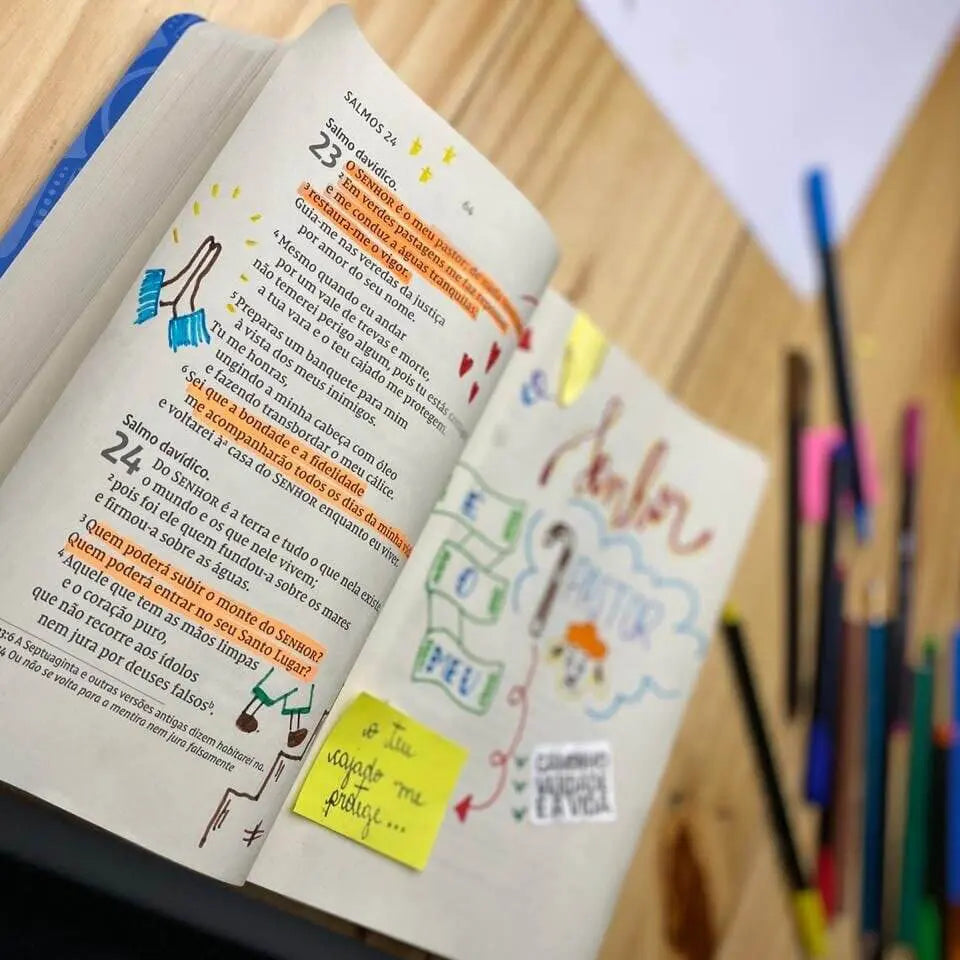 SALMOS 24
64
Salmo davídico.
23 O SENHOR é o meu pastor; de nada
² Em verdes pastagens me faz repousar
e me conduz a águas tranquilas;
³ restaura-me o vigor.
Guia-me nas veredas da justiça
por amor do seu nome.
⁴ Mesmo quando eu andar
por um vale de trevas e morte,
não temerei perigo algum, pois tu estás
a tua vara e o teu cajado me protegem.
⁵ Preparas um banquete para mim
à vista dos meus inimigos.
Tu me honras,
ungindo a minha cabeça com óleo
e fazendo transbordar o meu cálice.
⁶ Sei que a bondade e a fidelidade
me acompanharão todos os dias da minha
e voltarei àᵃ casa do SENHOR enquanto eu viver.
Salmo davídico.
24 Do SENHOR é a terra e tudo o que nela existe,
o mundo e os que nele vivem;
² pois foi ele quem fundou-a sobre os mares
e firmou-a sobre as águas.
³ Quem poderá subir o monte do SENHOR?
Quem poderá entrar no seu Santo Lugar?
⁴ Aquele que tem as mãos limpas
e o coração puro,
que não recorre aos ídolos
nem jura por deuses falsosᵇ.
23:6 A Septuaginta e outras versões antigas dizem habitarei na.
4 Ou não se volta para a mentira nem jura falsamente
Senhor
É
O
MEU
PASTOR
o teu
cajado me
protege...
CAMINHO
VERDADE
E A VIDA